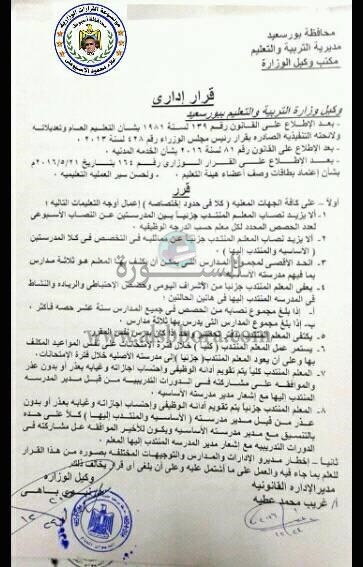 محافظة بورسعيد
مديرية التربية والتعليم
مكتب وكيل الوزارة
قرار إدارى
وكيل وزارة التربية والتعليم ببورسعيد
- بعد الإطلاع على القانون رقم ١٣٩ لسنة ١٩٨١ بشأن التعليم العام وتعديلاته
ولائحته التنفيذية الصادره بقرار رئيس مجلس الوزراء رقم ٤٢٨ لسنة ٢٠١٣
- بعد الإطلاع على القانون رقم ٨١ لسنة ٢٠١٦ بشأن الخدمه المدنيه .
- بعد الإطلاع على القرار الوزارى رقم ١٦٤ بتاريخ ٢٠١٦/٥/٢١
بشأن إعتماد بطاقات وصف أعضاء هيئة التعليم . ولحسن سير العملية التعليمية .
قرر
أولاً - على كافة الجهات المعنيه ( كلا فى حدود إختصاصه ) إعمال أوجه التعليمات التاليه :
١ - ألا يزيد نصاب المعلم المنتدب جزنيا بين المدرستين عن النصاب الأسبوعى
لعدد الحصص المحدد لكل معلم حسب الدرجه الوظيفيه .
٢ - ألا يزيد نصاب المعلم المنتدب جزئياً عن فى التخصص فى كلا المدرستين
( الأساسيه والمنتدب إليها ) .
٣ - الحد الأقصى لمجموع المدارس التى يكلف بها المعلم هو ثلاثة مدارس
بما فيهم مدرسته الأساسيه .
٤ - يعفى المعلم المنتدب جزئياً من الأشراف اليومى وحصص الاحتياطى والرياده والنشاط
فى المدرسه المنتدب إليها فى هاتين الحالتين :
أ- إذا بلغ مجموع نصابه من الحصص فى جميع المدارس ستة عشر حصه فأكثر .
ب- إذا بلغ مجموع المدارس التى يدرس بها ثلاثة مدارس .
٥ - يكتفى المعلم المنتدب
٦ - يستمر عمل المعلم المنتدب ( كلياً / جزئياً ) المواعيد المكلف
بها وعلى أن يعود المعلم المنتدب (جزئيا) إلى مدرسته الأصليه خلال فترة الامتحانات .
٧ - المعلم المنتدب كلياً يتم تقويم أدائه الوظيفى وإحتساب إجازاته وغيابه بعذر أو بدون عذر
والموافقه على مشاركته فى الدورات التدريبيه من قبل مدير المدرسه
المنتدب إليها مع إشعار مدير مدرسته الأساسيه .
٨ - المعلم المنتدب جزئياً يتم تقويم أدائه الوظيفى وإحتساب اجازاته وغيابه بعذر أو بدون
عذر من قبل مدير مدرسته ( الأساسيه والمنتدب إليها ) كلاً على حده
بالتنسيق مع مدير مدرسته الأساسيه ويكون للأخير الموافقه على مشاركته فى
الدورات التدريبيه مع إشعار مدير المدرسه المنتدب إليها المعلم .
ثانياً - إخطار مديرو الإدارات والمدارس والتوجيهات المختلفه بصوره من هذا القرار
للعلم بما جاء فيه والعمل على ما أشتمل عليه وعلى أن يلغى أى قرار يخالف ذلك
وكيل الوزاره
مدير الإدارة القانونيه
أ/ غريب محمد عطيه